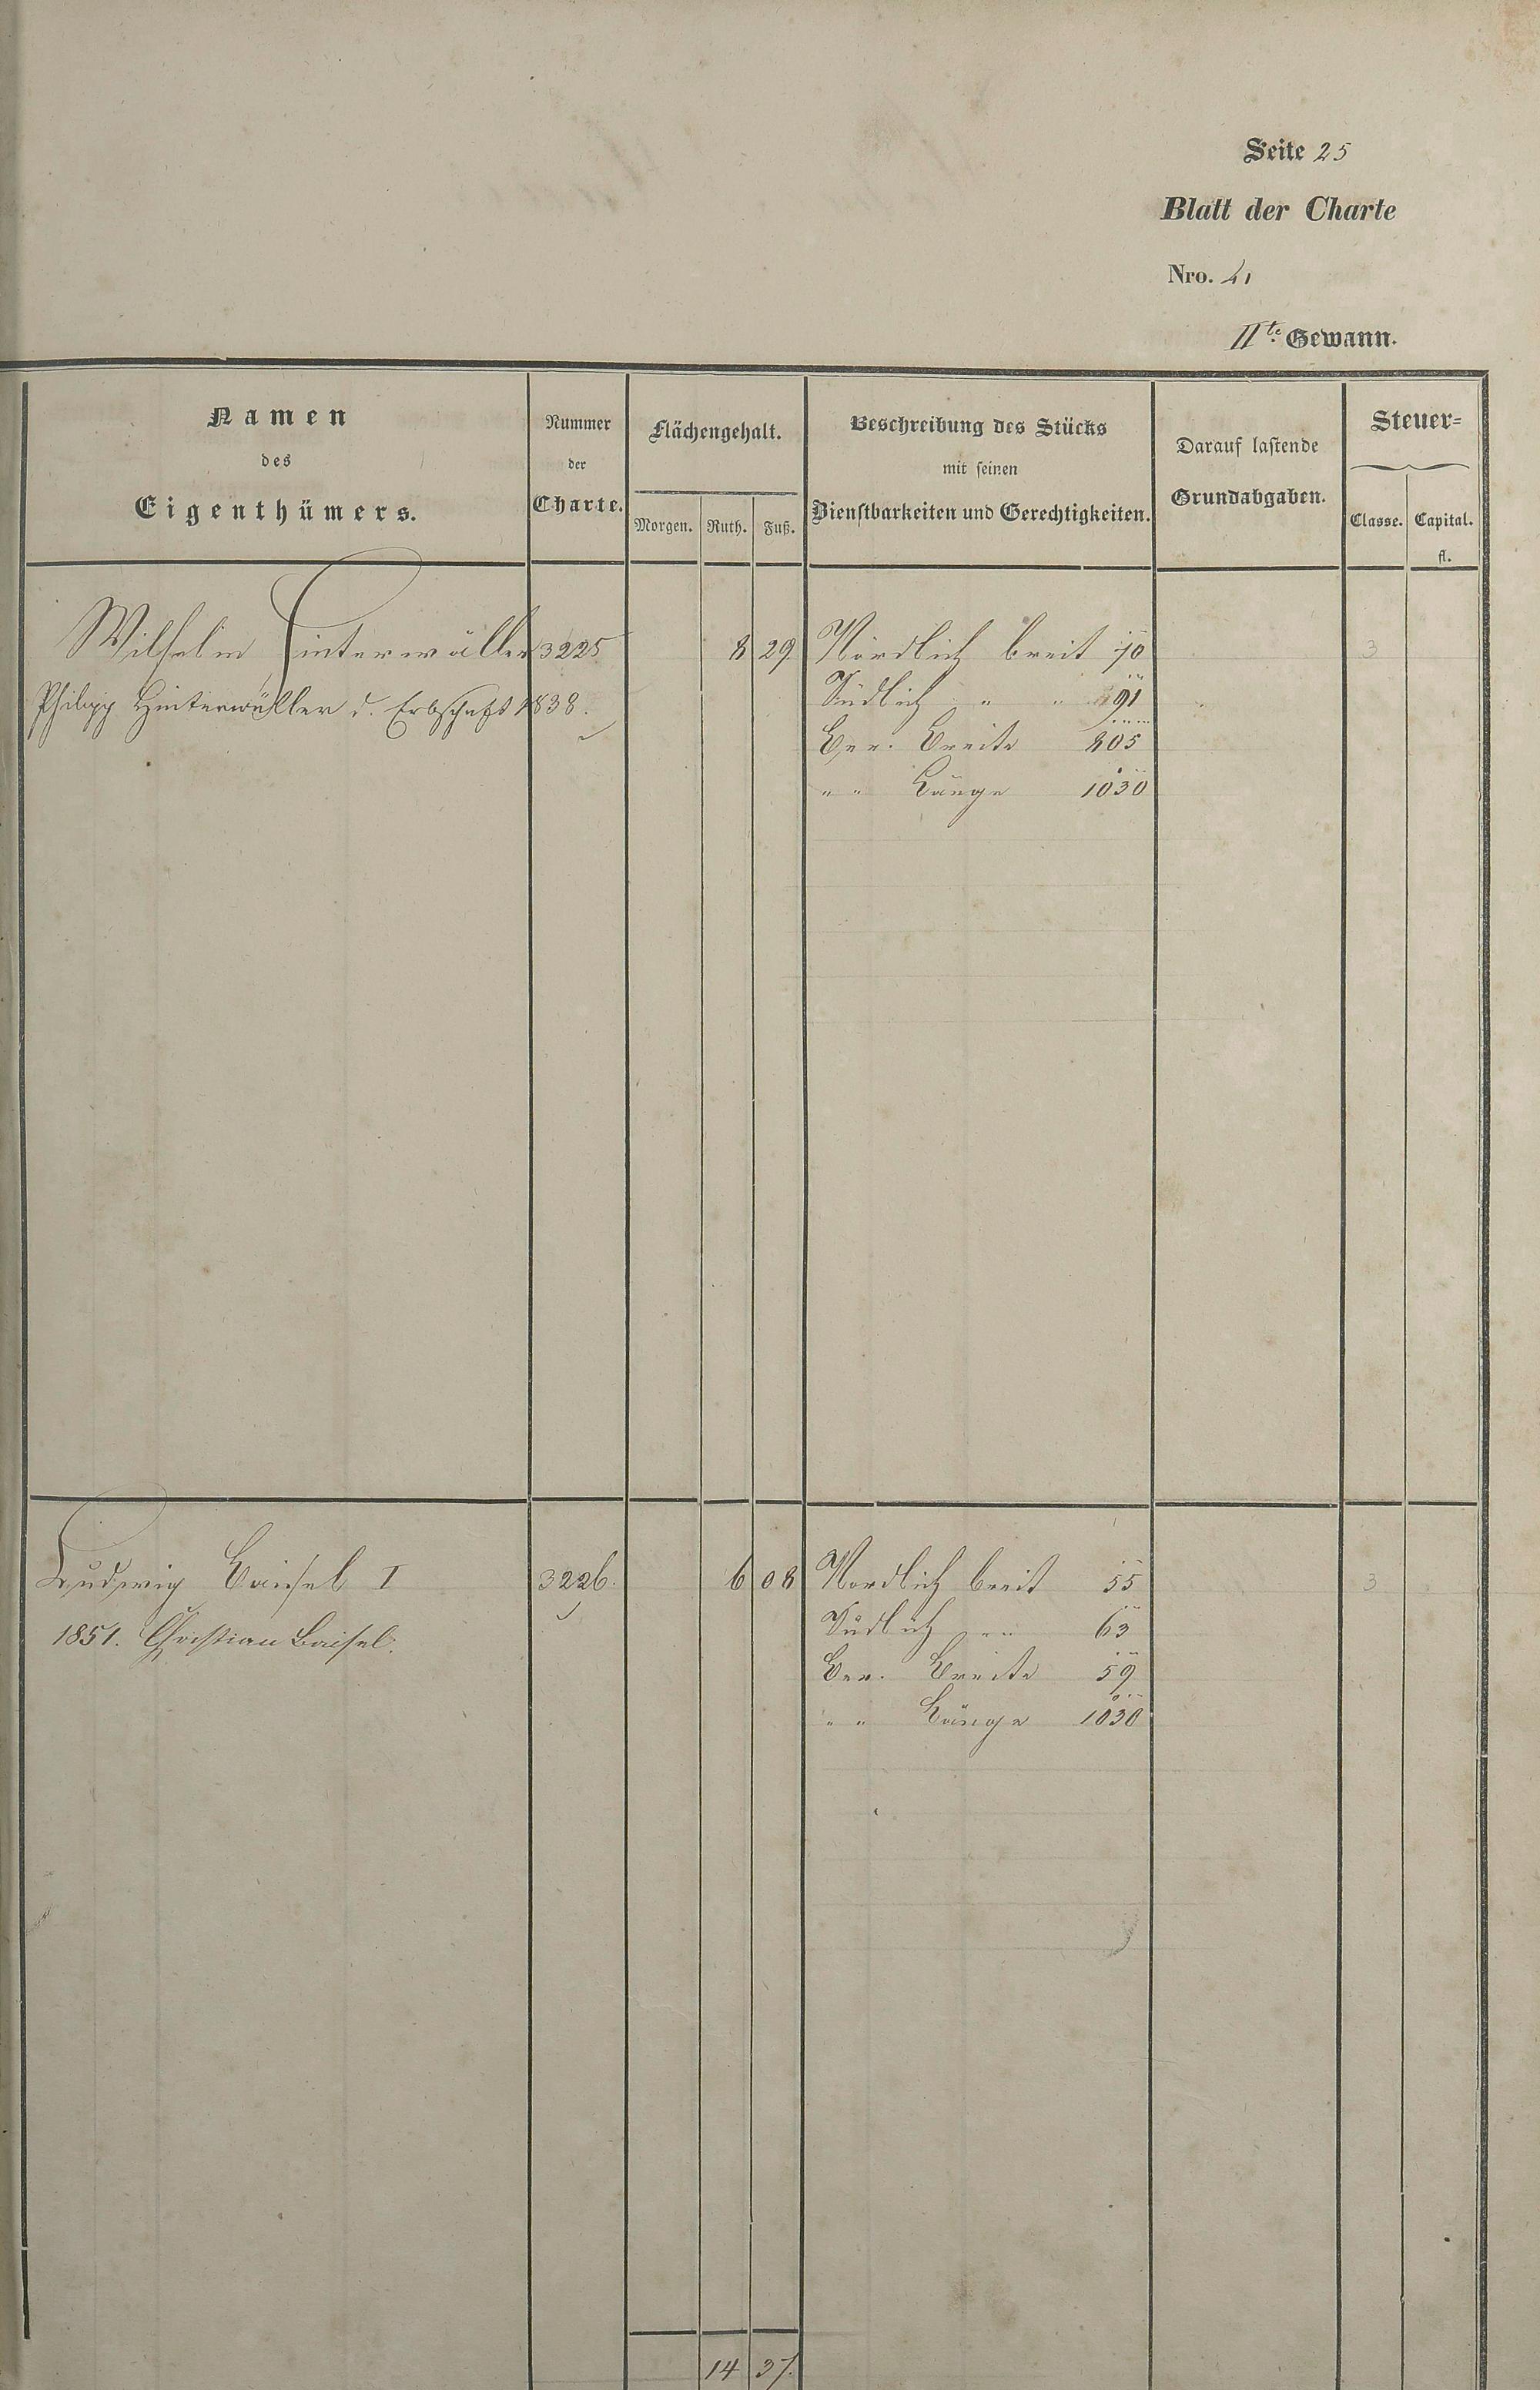 Seite 25
Blatt der Charte
Nro. 21
IIte Gewann.
Namen
des
Eigenthümers.
Nummer
der
Charte.
Flächengehalt.
Morgen. Ruth. Fuß.
Beschreibung des Stücks
mit seinen
Dienstbarkeiten und Gerechtigkeiten.
Darauf lastende
Grundabgaben.
Steuer-
Classe. Capital.
fl.
Wilhelm Hinterwäller 3225 8 29 Nördlich breit 70 3
Philipp Hinterwäller d. Erbschaft 1838. Südlich " " 91
Ber. Breite 805
" " Länge 1030
Ludwig Baisel I 3226. 6 08 Nördlich breit 55 3
1851. Christian Baisel. Südlich " " 63
Ber. Breite 59
" " Länge 1030
14 37.